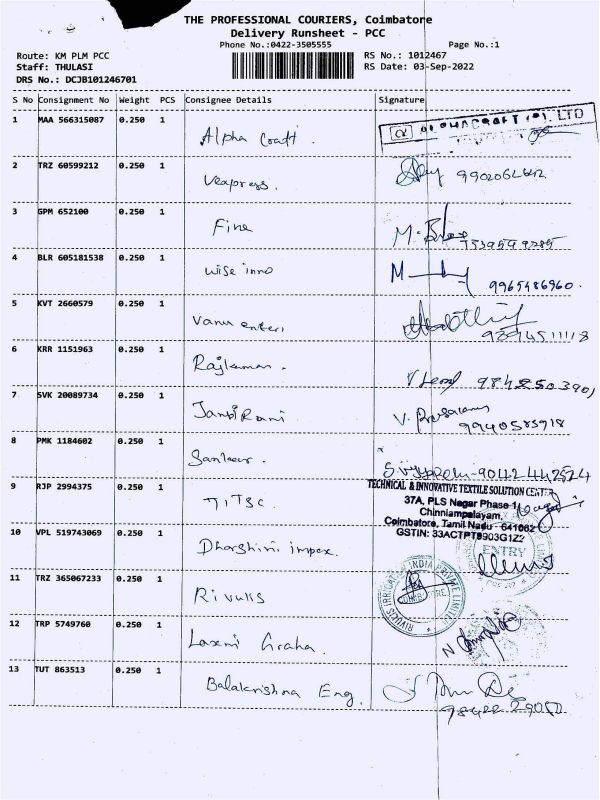 THE PROFESSIONAL COURIERS, Coimbatore
Delivery Runsheet - PCC
Phone No.:0422-3505555
Page No.:1
Route: KM PLM PCC
RS No.: 1012467
Staff: THULASI
RS Date: 03-Sep-2022
DRS No.: DCJB101246701
S No Consignment No Weight PCS Consignee Details Signature
1 MAA 566315087 0.250 1 Alpha Craft. ALPHACRAFT (P) LTD
2 TRZ 60599212 0.250 1 Vexpress.
3 GPM 652100 0.250 1 Fine
4 BLR 605181538 0.250 1 wise inno 9965486960.
5 KVT 2660579 0.250 1 Vanu enteri 9894511118
6 KRR 1151963 0.250 1 Rajkumar.
7 SVK 20089734 0.250 1 9940583918
8 PMK 1184602 0.250 1 Sankar. 9042442524
9 RJP 2994375 0.250 1 TITSC.
TECHNICAL & INNOVATIVE TEXTILE SOLUTION CENTER
37A, PLS Nagar Phase 1,
Chinniampalayam,
Coimbatore, Tamil Nadu - 641062
GSTIN: 33ACTPT9903G1Z2
10 VPL 519743069 0.250 1 Dharshini impex. ENTRY
11 TRZ 365067233 0.250 1 Rivulis RIVULIS IRRIGATION INDIA PRIVATE LIMITED
12 TRP 5749760 0.250 1 Laxmi Graha.
13 TUT 863513 0.250 1 Balakrishna Eng.